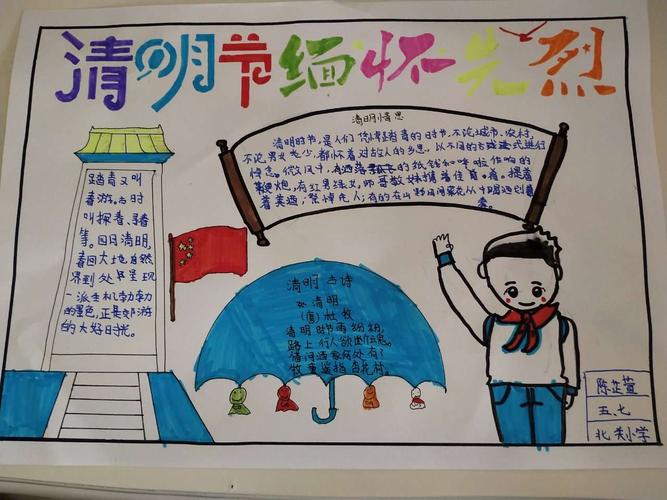 清明节缅怀先烈
清明情思
清明时节,是人们凭悼踏青的时节,不论城市、农村,
不论男女老少,都怀着对故人的乡思,以不同的方式进行
悼念。微风中,有洒落飘飞的纸钱和噼啪作响的
鞭炮,有红男绿女,
着美酒;祭悼先人;有的在山野间
踏青又叫
春游。古时
叫探春、寻春
等。四月清明,
春回大地,自然
界到处呈现
一派生机勃勃
的景色,正是郊游
的大好时光。
清明 古诗
清明
(唐)杜牧
清明时节雨纷纷,
路上行人欲断魂。
借问酒家何处有?
牧童遥指杏花村。
陈芷萱
五、七
北关小学